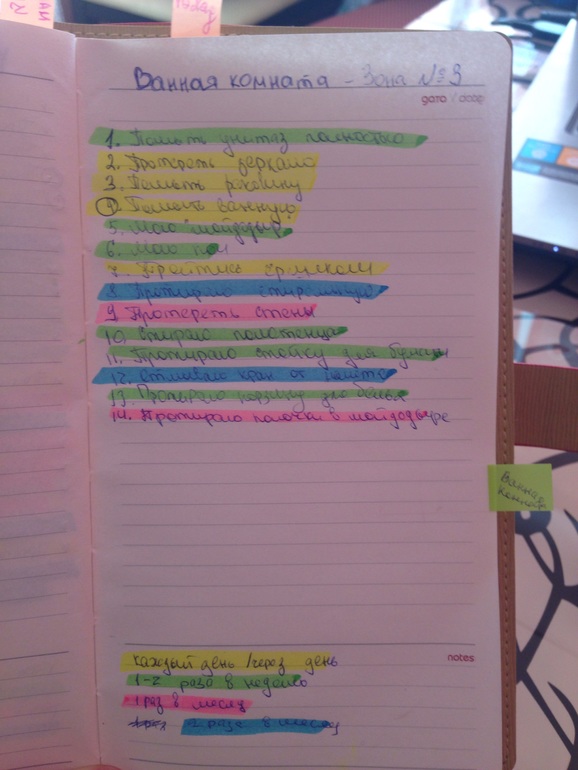 today
Ванная комната - Зона №3
дата / date
1. Помыть унитаз полностью
2. Протереть зеркало
3. Помыть раковину
4 Помыть ванную
5. Мою мойдодыр
6. Мою пол
7. Пройтись
8. Протираю стиральную
9. Протереть стены
10. Стираю полотенца
11. Протираю стойку для бумаги
12. Отмываю кран от налёта
13. Протираю корзину для белья
14. Протираю полочки в мойдодыре
Ванная
комната
notes
каждый день / через день
1-2 раза в неделю
1 раз в месяц
2 раза в месяц